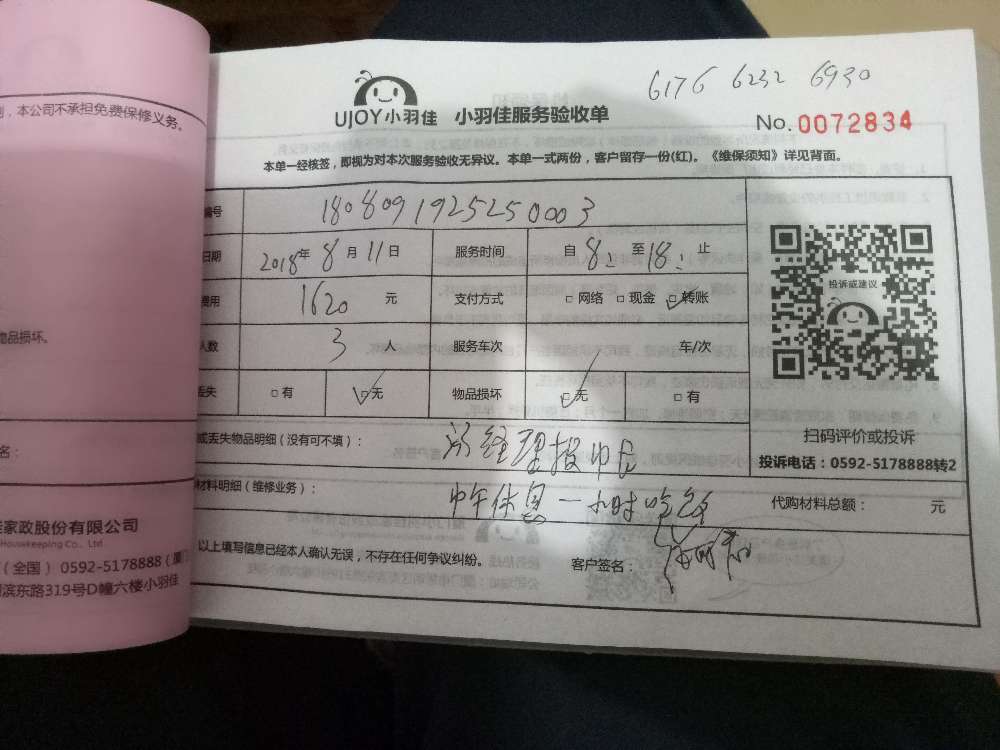 6176 6232 6930
UJOY小羽佳 小羽佳服务验收单
No.0072834
本单一经核签，即视为对本次服务验收无异议。本单一式两份，客户留存一份(红)。《维保须知》详见背面。
编号 1808091925250003
日期 2018年8月11日 服务时间 自8:至18:止
费用 1620 元 支付方式 □网络 □现金 □转账
人数 3 人 服务车次 车/次
丢失 □有 □无 物品损坏 □无 □有
投诉或建议
扫码评价或投诉
投诉电话：0592-5178888转2
或丢失物品明细（没有可不填）： 经理报
材料明细（维修业务）： 中午休息一小时吃饭 代购材料总额： 元
以上填写信息已经本人确认无误，不存在任何争议纠纷。 客户签名：
本公司不承担免费保修义务。
物品损坏。
名：
家政股份有限公司
Housekeeping Co., Ltd
（全国） 0592-5178888（厦
滨东路319号D幢六楼小羽佳